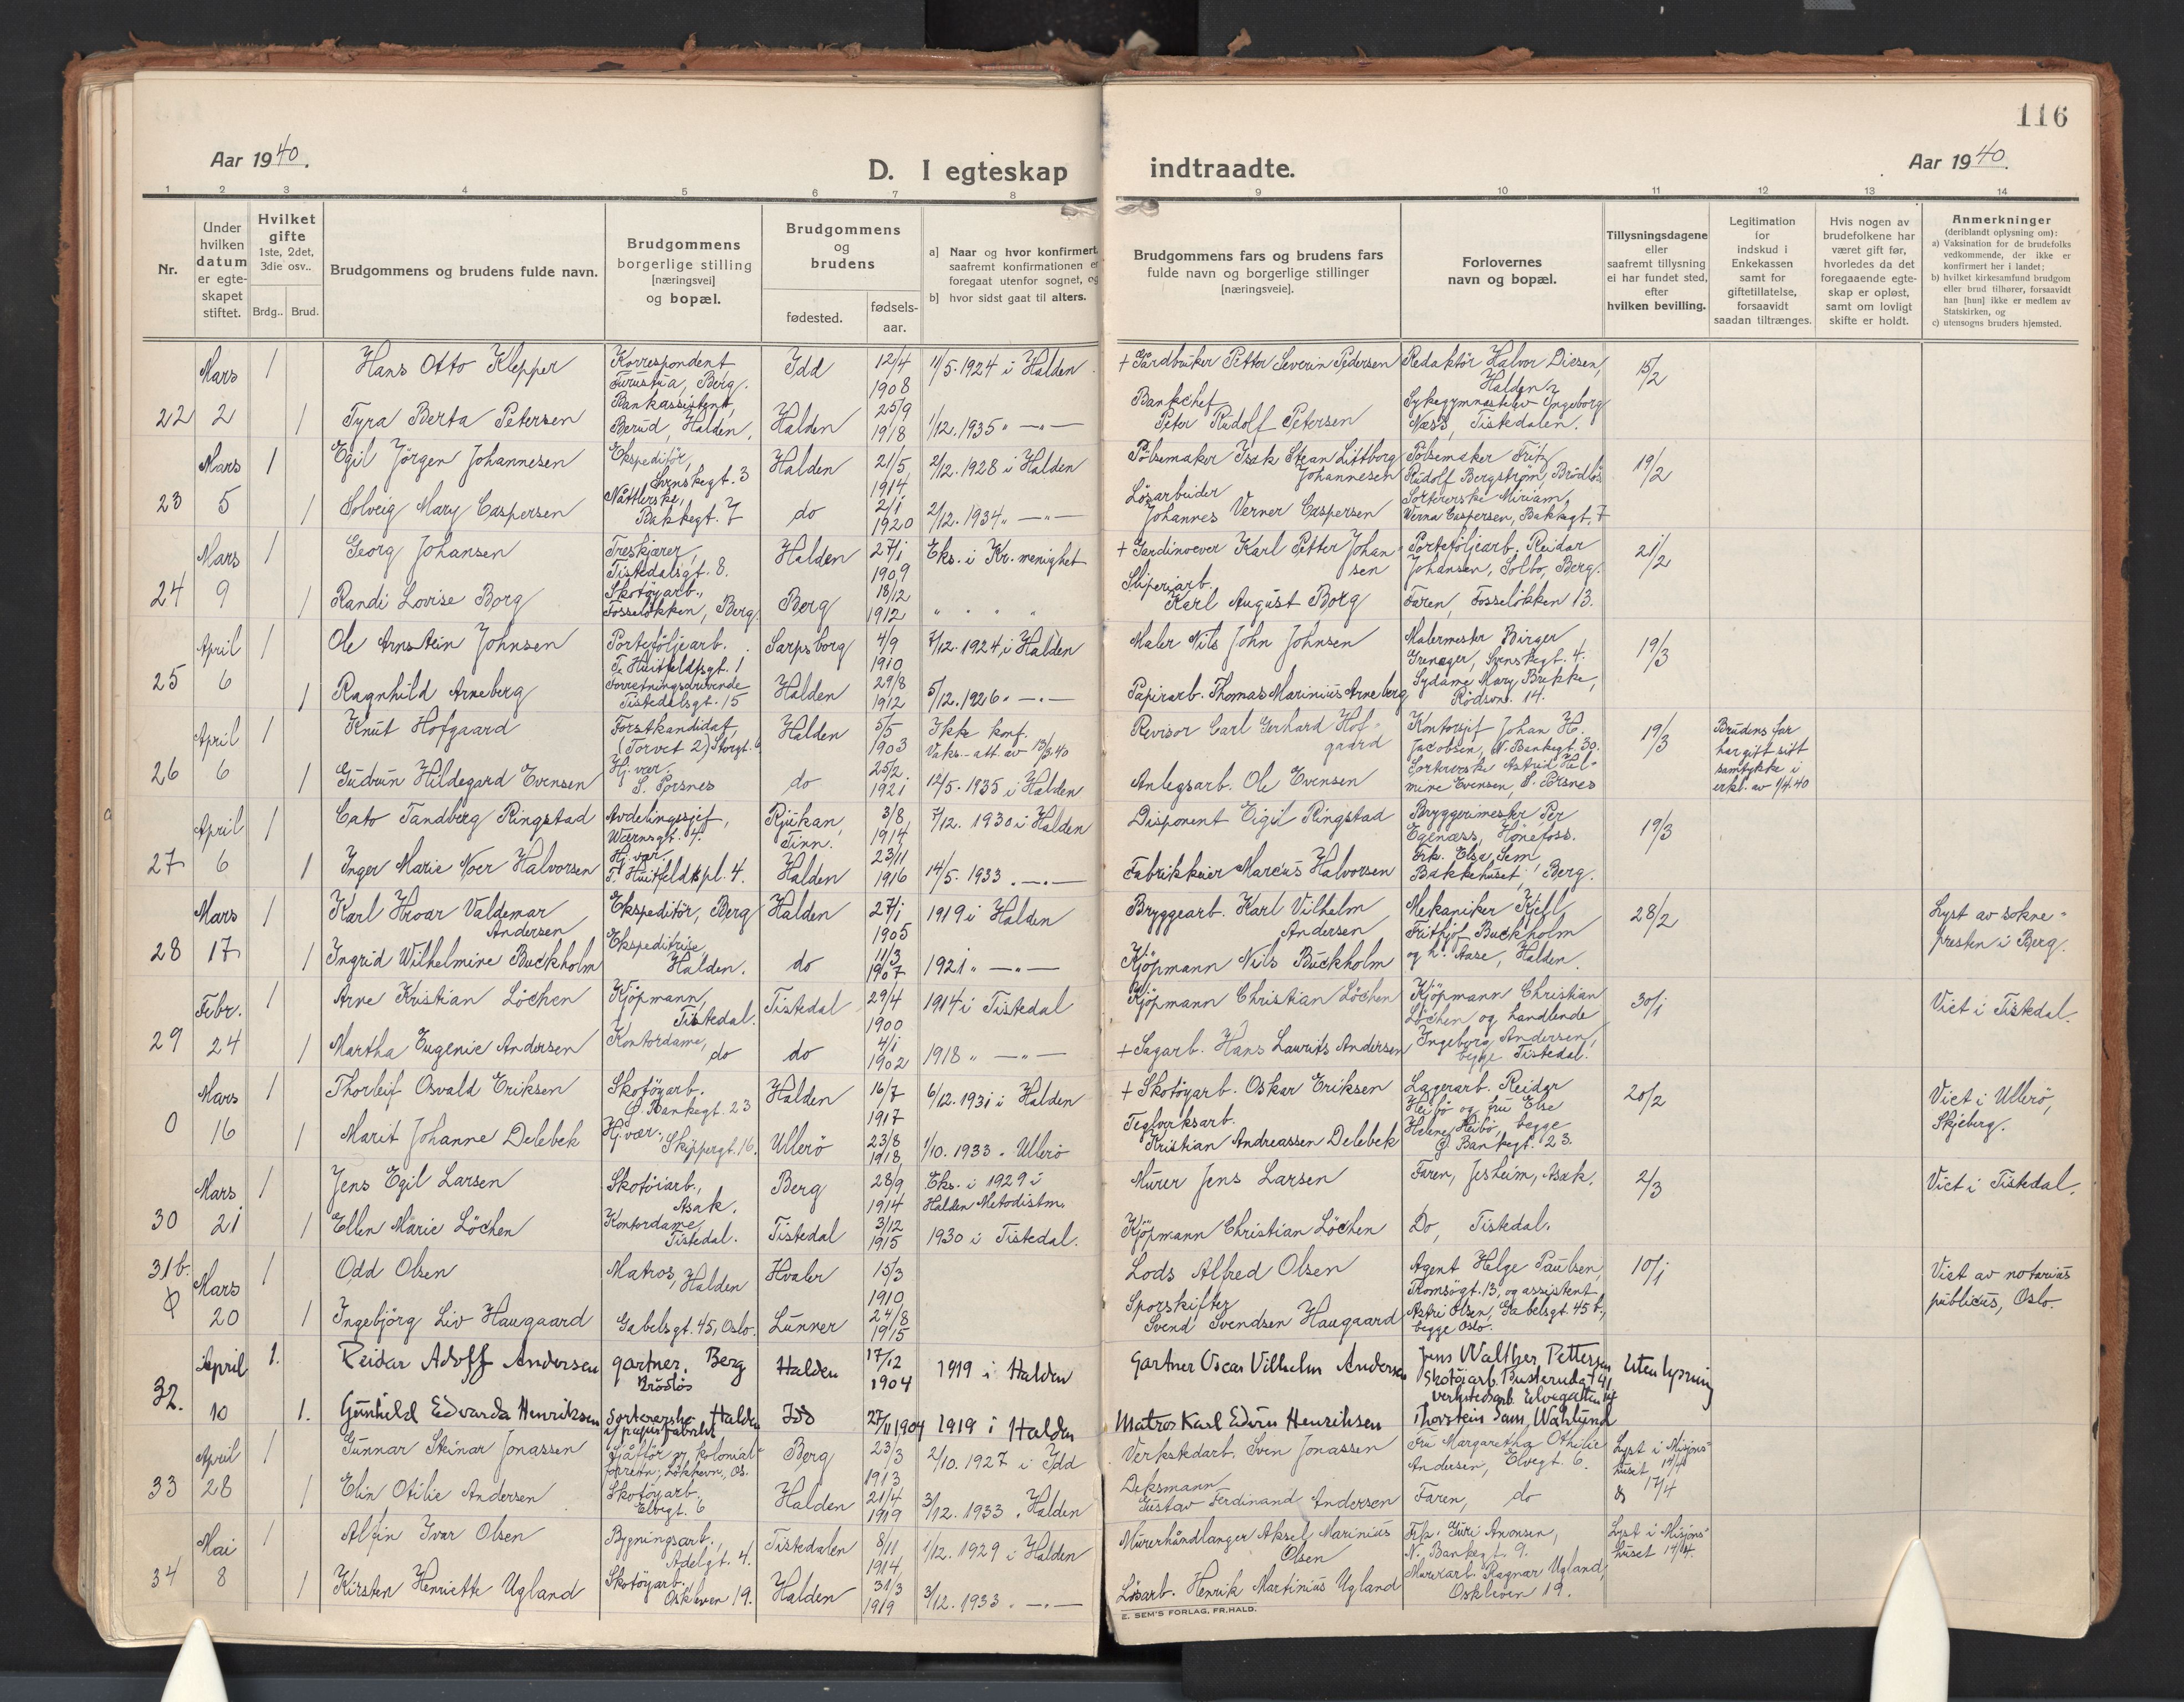 116
Aar 1940.
D. I egteskap indtraadte.
Aar 1940.
1 2 3 4 5 6 7 8 9 10 11 12 13 14
Nr.
Under hvilken datum er egteskapet stiftet.
Hvilket gifte 1ste, 2det, 3die osv..
Brdg.. Brud.
Brudgommens og brudens fulde navn.
Brudgommens borgerlige stilling [næringsvei] og bopæl.
Brudgommens og brudens
fødested.
fødsels-aar.
a] Naar og hvor konfirmert, saafremt konfirmationen er foregaat utenfor sognet, og
b] hvor sidst gaat til alters.
Brudgommens fars og brudens fars fulde navn og borgerlige stillinger [næringsveie].
Forlovernes navn og bopæl.
Tillysningsdagene eller saafremt tillysning ei har fundet sted, efter hvilken bevilling.
Legitimation for indskud i Enkekassen samt for giftetillatelse, forsaavidt saadan tiltrænges.
Hvis nogen av brudefolkene har været gift før, hvorledes da det foregaaende egteskap er opløst, samt om lovligt skifte er holdt.
Anmerkninger (deriblandt oplysning om):
a) Vaksination for de brudefolks vedkommende, der ikke er konfirmert her i landet;
b) hvilket kirkesamfund brudgom eller brud tilhører, forsaavidt han [hun] ikke er medlem av Statskirken, og
c) utensogns bruders hjemsted.
Mars 1 Hans Otto Klepper Korrespondent Furustua, Berg. Idd 12/4 1908 11/5.1924 i Halden + Gardbruker Petter Severin Pedersen Redaktör Halvor Diesen, Halden 15/2
22 2 1 Tyra Berta Petersen Bankassistent, Berud, Halden. Halden 25/9 1918 1/12.1935 " —"— Bankchef Peter Rudolf Petersen Sykegymnastelev Ingeborg Næss, Tistedalen.
Mars 1 Egil Jörgen Johannesen Ekspeditör, Svenskegt. 3 Halden 21/5 1914 2/12.1928 i Halden Pölsemaker Isak Stean Littborg Johannesen Pölsemaker Fritz Rudolf Bergström, Brödlös 19/2
23 5 1 Solveig Mary Caspersen Nåttlerske, Bakkegt. 7 do 2/1 1920 2/12.1934 " —"— Lösarbeider Johannes Verner Caspersen Sortererske Miriam Verna Caspersen, Bakkegt. 7
Mars 1 Georg Johansen Treskjærer, Tistedalsgt. 8. Halden 27/1 1909 Eks. i Kr. menighet + Gardinvever Karl Petter Johansen Porteföljearb. Reidar Johansen, Solbo, Berg. 21/2
24 9 1 Randi Lovise Borg Skotöyarb., Fosselökken, Berg Berg 18/12 1912 " " " " Sliperiarb. Karl August Borg Faren, Fosselökken 13.
April 1 Ole Arnstein Johnsen Porteföljearb. T. Huitfeldtsgt. 1 Sarpsborg 4/9 1910 7/12.1924, i Halden Maler Nils John Johnsen Malermester Birger Grenager, Svenskegt. 4. 19/3
25 6 1 Ragnhild Arneberg Forretningsdrivende Tistedalsgt. 15 Halden 29/8 1912 5/12.1926 " —"— Papirarb. Thomas Marinius Arneberg Sydame Mary Brekke, Rödsvn. 14.
April 1 Knut Hofgaard Forstkandidat, (Torvet 2) Storgt. 6 Halden 5/5 1903 Ikke konf. Vaks.-att av 13/3 40 Revisor Carl Gerhard Hofgaard Kontorsjef Johan H. Jacobsen, N. Bankegt. 30. 19/3 Brudens far har gitt sitt samtykke i erkl. av 1/4.40
26 6 1 Gudrun Hildegard Evensen Hj.vær. S. Porsnes do 25/2 1921 12/5.1935 i Halden Anlegsarb. Ole Evensen Sortererske Astrid Helmine Evensen, S. Porsnes
April 1 Cato Tandberg Ringstad Avdelingssjef, Wærnsgt. 4. Rjukan, Tinn. 3/8 1914 7/12.1930 i Halden Disponent Eigil Ringstad Bryggerimester Per Egenæss, Hönefoss. 19/3
27 6 1 Inger Marie Noer Halvorsen Hj.vær. T. Huitfeldtspl. 4. Halden 23/11 1916 14/5.1933 . —.— Fabrikkeier Marcus Halvorsen Frk. Elsa Sem Bakkehuset, Berg.
Mars 1 Karl Hroar Valdemar Andersen Ekspeditör, Berg Halden 27/1 1905 1919 i Halden Bryggearb. Karl Vilhelm Andersen Mekaniker Kjell Frithjof Buckholm 28/2 Lyst av soknepresten i Berg.
28 17 1 Ingrid Wilhelmine Buckholm Ekspeditrise Halden. do 11/3 1907 1921 " —"— Kjöpmann Nils Buckholm og h. Aase, Halden.
Febr. 1 Arne Kristian Löchen Kjöpmann, Tistedal. Tistedal 29/4 1900 1914 i Tistedal Kjöpmann Christian Löchen Kjöpmann Christian Löchen og handlende 30/1 Viet i Tistedal.
29 24 1 Martha Eugenie Andersen Kontordame, do do 4/1 1902 1918 " —"— + Sagarb. Hans Laurits Andersen Ingeborg Andersen, begge Tistedal.
Mars 1 Thorleif Osvald Eriksen Skotöyarb. Ö. Bankegt. 23 Halden 16/7 1917 6/12.1931 i Halden + Skotöyarb. Oskar Eriksen Lagerarb. Reidar Heibö og fru Else 20/2 Viet i Ullerö, Skjeberg.
0 16 1 Marit Johanne Delebek Hj.vær. Skippergt. 16. Ullerö 23/8 1918 1/10.1933 " Ullerö Teglverksarb. Kristian Andreassen Delebek Helene Heibö, begge Ö. Bankegt. 23.
Mars 1 Jens Egil Larsen Skotöiarb., Asak. Berg 28/9 1914 Eks. i 1929 i Halden Metodistm. Murer Jens Larsen Faren, Jesheim, Asak. 2/3 Viet i Tistedal.
30 21 1 Ellen Marie Löchen Kontordame, Tistedal. Tistedal 3/12 1915 1930 i Tistedal. Kjöpmann Christian Löchen Do, Tistedal.
31b. Mars 1 Odd Olsen Matros, Halden Hvaler 15/3 1910 Lods Alfred Olsen Agent Helge Paulsen, Tromsögt. 13, og assistent 10/1 Viet av notarius publicus, Oslo.
20 1 Ingebjörg Liv Haugaard Gabelsgt. 45, Oslo. Lunner 24/8 1915 Sporskifter Svend Svendsen Haugaard Astri Olsen, Gabelsgt. 45 b, begge Oslo.
April 1. Reidar Adolf Andersen gartner. Berg Brödlös Halden 17/12 1904 1919 i Halden Gartner Oscar Vilhelm Andersen Jens Walther Pettersen Skotöiarb. Busterudgt 41 Uten lysning
32. 10 1. Gunhild Edvarda Henriksen Sortererske Halden papirfabrikk Idd 27/11 1904 1919 i Halden Matros Karl Edvin Henriksen verkstedsarb. Elvegatten 14 Thorstein Sam. Wahlund
April 1 Gunnar Steinar Jonassen Sjåfför og kolonialforretn., Lökkevn., Os. Berg 23/3 1913 2/10.1927 i Idd Verkstedarb. Sven Jonassen Fru Margaretha Othilie Andersen, Elvegt. 6. Lyst i Misjonshuset 14/4
33 28 1 Elin Otilie Andersen Skotöyarb. Elvegt. 6 Halden 21/4 1919 3/12.1933 . Halden Deksmann Gustav Ferdinand Andersen Faren, do og 17/4
Mai 1 Alfin Ivar Olsen Bygningsarb., Adelgt. 4. Tistedalen 8/11 1914 1/12.1929 i Halden Murerhåndlanger Aksel Marinius Olsen Frk. Guri Aronsen, N. Bankegt. 9. Lyst i Misjonshuset 14/4.
34 8 1 Kirsten Henriette Ugland Skotöyarb. Oskleven 19. Halden 31/3 1919 3/12.1933 . —.— Lösarb. Henrik Martinius Ugland Murerarb. Ragnar Ugland, Oskleven 19.
E. SEM'S FORLAG, FR.HALD.